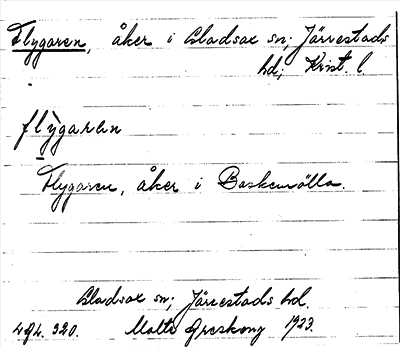 Flygaren, åker i Gladsax sn; Järrestads
hd; Krist. l.
flygaren
Flygaren, åker i Baskemölla.
Gladsax sn; Järrestads hd.
Malte Areskoug 1923.